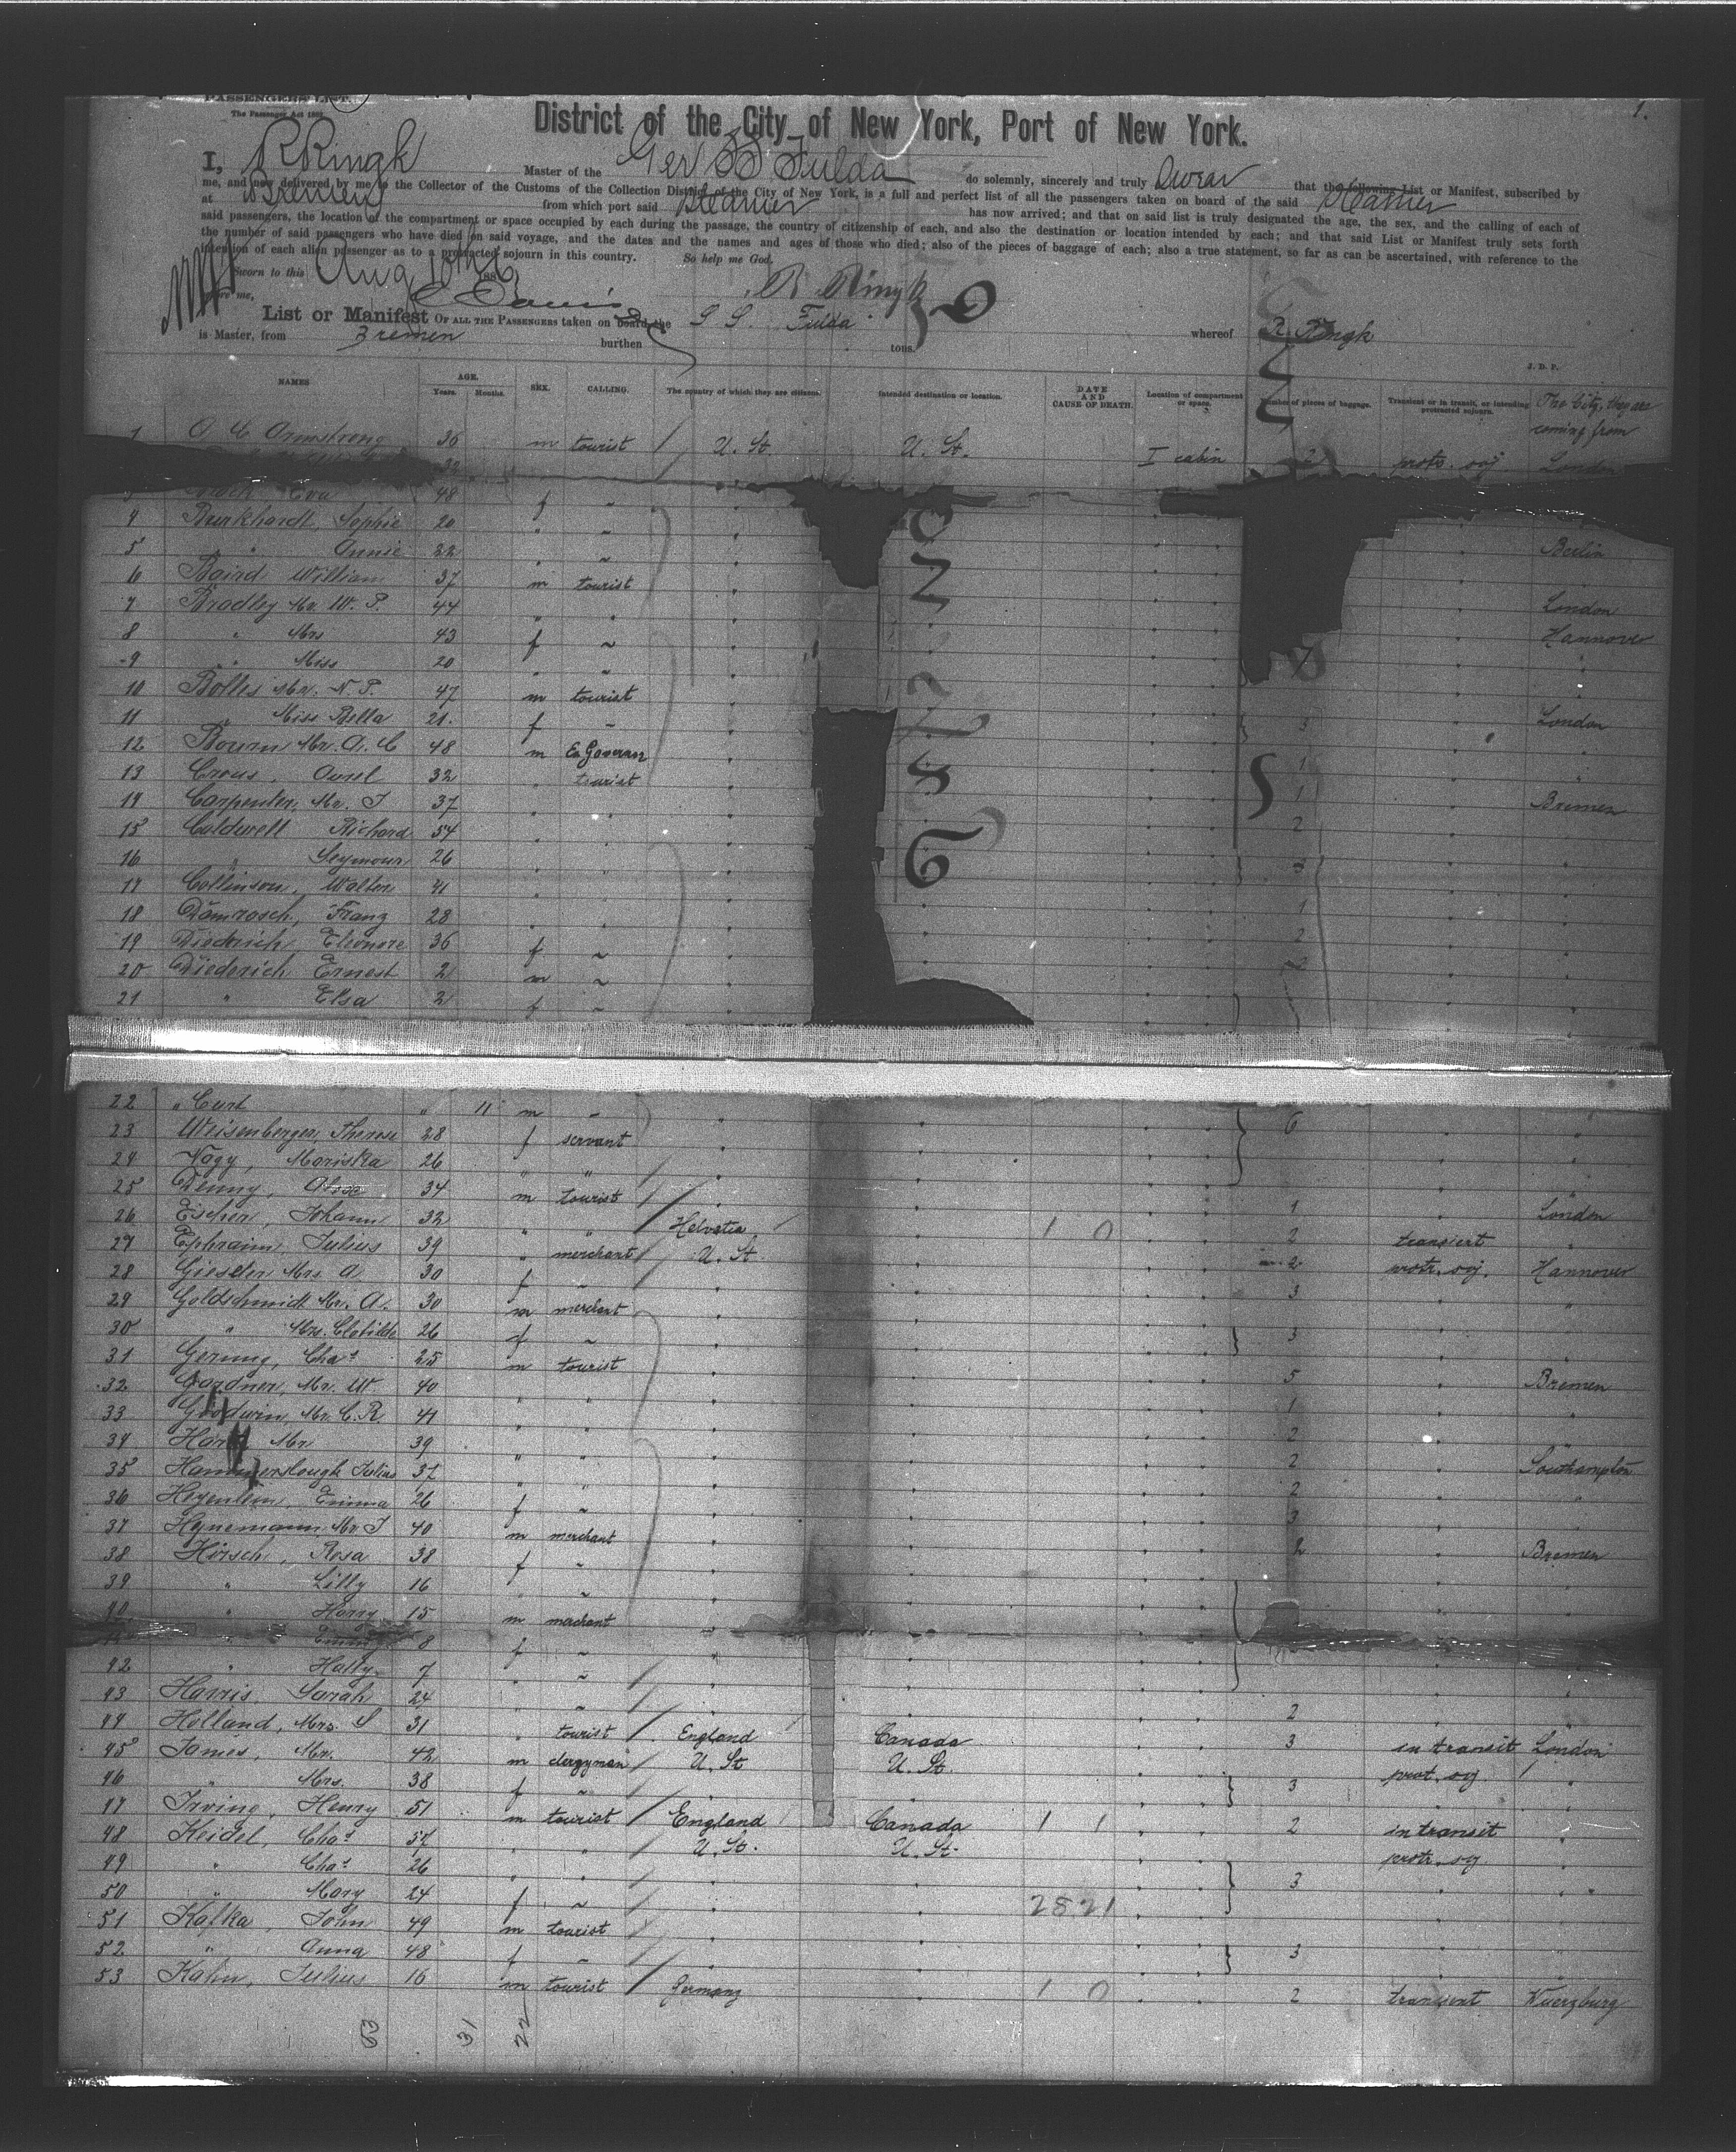 PASSENGERS' LIST. 1.
The Passenger Act 1882
District of the City of New York, Port of New York.
I, R Ringk Master of the Ger SS Fulda do solemnly, sincerely and truly Swear that the following List or Manifest, subscribed by
me, and now delivered by me to the Collector of the Customs of the Collection District of the City of New York, is a full and perfect list of all the passengers taken on board of the said Steamer
at Bremen from which port said Steamer has now arrived; and that on said list is truly designated the age, the sex, and the calling of each of
said passengers, the location of the compartment or space occupied by each during the passage, the country of citizenship of each, and also the destination or location intended by each; and that said List or Manifest truly sets forth
the number of said passengers who have died on said voyage, and the dates and the names and ages of those who died; also of the pieces of baggage of each; also a true statement, so far as can be ascertained, with reference to the
intention of each alien passenger as to a protracted sojourn in this country. So help me God.
Sworn to this Aug 188
R. Ringk
List or Manifest OF ALL THE PASSENGERS taken on board the S S. Fulda whereof R. Ringk
is Master, from Bremen burthen tons.
J. D. P.
NAMES AGE. Years. Months. SEX. CALLING. The country of which they are citizens. Intended destination or location. DATE AND CAUSE OF DEATH. Location of compartment or space. Number of pieces of baggage. Transient or in transit, or intending protracted sojourn. The City, they are coming from
1 Armstrong 36 m tourist U. St. U. St. I cabin 2 protr. soj London
Eva 48 f ~
4 Burkhardt, Sophie 20 " ~
5 " Annie 22 " ~ Berlin
6 Baird William 37 m tourist
7 Bradley Mr. W. P. 44 " " London
8 " Mrs 43 f ~ Hannover
9 " Miss 20 " ~ "
10 Bolles Mr. N. P. 47 m tourist
11 " Miss Bella 21. f ~ 3 London
12 Bourn Mr. A. C 48 m Ex Governor 1
13 Crous, Aurel 32 " tourist 1 "
14 Carpenter, Mr. J 37 " " 2 Bremen
15 Caldwell Richard 54 " "
16 " Seymour 26 " " 3
17 Collinson, Walter 41 " " 1
18 Damrosch, Franz 28 " " 2
19 Diederich Eleonore 36 f ~ 2
20 Diederich Ernest 2 m ~
21 " Elsa 2 f ~
22 " Curt " 11 m ~ 6
23 Weisenberger, Therese 28 f servant
24 Nagy, Mariska 26 " "
25 Denny, 34 m tourist 1 London
26 Escher, Johann 32 " " Helvetia 1 0 2 transient "
27 Ephraim, Julius 39 " merchant U. St 2 protr. soj. Hannover
28 Giesler Mrs A 30 f ~ 3 "
29 Goldschmidt Mr. A. 30 m merchant
30 " Mrs. Clotilde 26 f ~ 3
31 Gerung, Chas 25 m tourist 5 Bremen
32 Gardner, Mr. W. 40 " " 1 "
33 Goodwin, Mr. C. R. 41 " " 2
34 Mr 39 " " 2 Southampton
35 Hammerslough Julius 37 " " 2 "
36 Heyenlein, Emma 26 f ~ 3
37 Heynemann, Mr J 40 m merchant 2 Bremen
38 Hirsch, Rosa 38 f ~
39 " Lilly 16 " ~
40 " Harry 15 m merchant
" 8 f ~
42 " Hally 7 " ~
43 Harris, Sarah 24 " ~ 2
44 Holland, Mrs. S 31 " tourist England Canada 3 in transit London
45 James, Mr. 42 m clergyman U. St U. St. prot. soj "
46 " Mrs. 38 f ~ 3
47 Irving, Henry 51 m tourist England Canada 1 1 2 in transit "
48 Keidel, Chas 57 " " U. St. U. St. protr. soj "
49 " Chas 26 " " 3
50 " Mary 24 f ~ 2821
51 Kafka, John 49 m tourist
52 " Anna 48 f ~ 3
53 Kahn, Julius 16 m tourist Germany 1 0 2 transient Wuerzburg
53 31 22